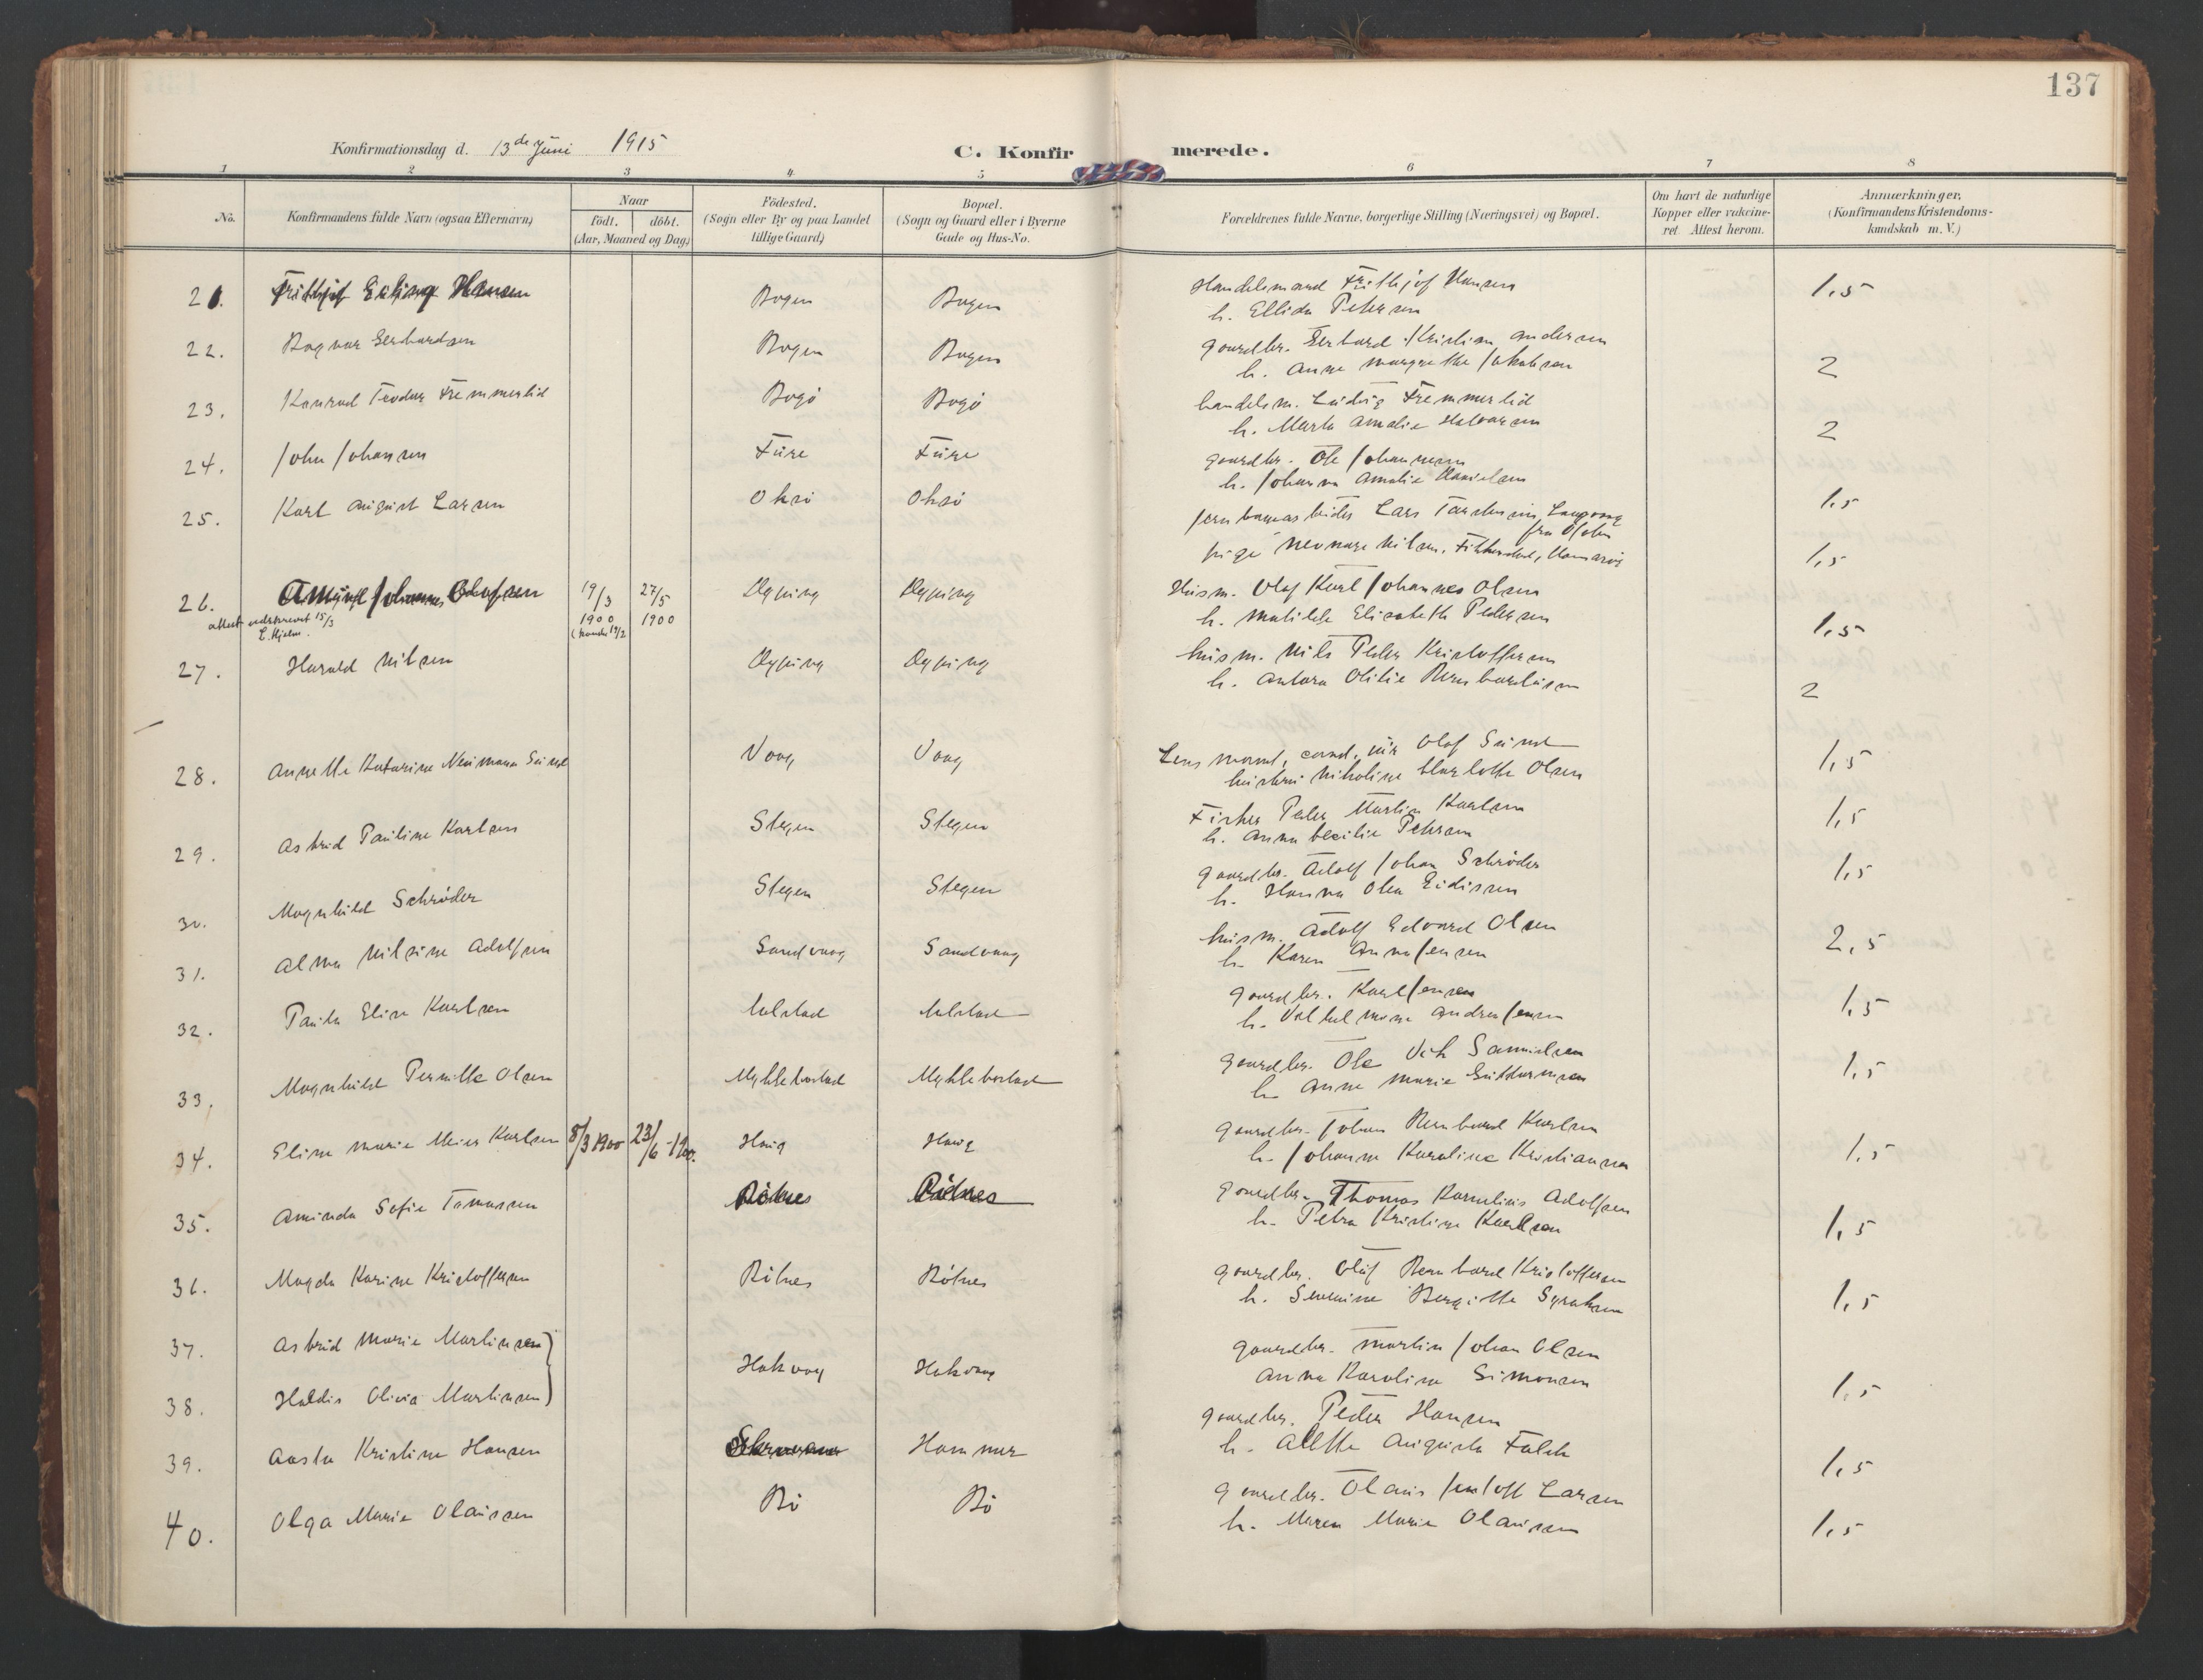 137
Konfirmationsdag d. 13de Juni 1915
C. Konfirmerede.
1 2 3 4 5 6 7 8
No.
Konfirmandens fulde Navn (ogsaa Efternavn)
Naar
födt. döbt.
(Aar, Maaned og Dag)
Födested.
(Sogn eller By og paa Landet
tillige Gaard)
Bopæl.
(Sogn og Gaard eller i Byerne
Gade og Hus-No.
Forældrenes fulde Navne, borgerlige Stilling (Næringsvei) og Bopæl.
Om havt de naturlige
Kopper eller vakcine-
ret. Attest herom.
Anmærkninger.
(Konfirmandens Kristendoms-
kundskab m. V.)
21. Frithjof Erling Hansen Bogen Bogen Handelsmand Frithjof Hansen 1,5
h. Ellida Petersen
22. Ragnar Gerhardsen Bogen Bogen gaardbr. Gerhard Kristian Andersen 2
h. Anne Margrethe Jakobsen
23. Konrad Teodor Fremmerlid Bogö Bogö handelsm. Ludvig Fremmerlid 2
h. Marta Amalie Halvorsen
24. John Johansen Füre Füre gaardbr. Ole Johannesen 1,5
h. Johanna Amalie Danielsen
25. Karl August Larsen Oksö Oksö Lars 1,5
fra
pige Nilsen, Hamarö
26. Johannes Olafsen 19/3 1900 27/5 1900 Husm. Olaf Karl Johannes Olsen 1,5
attest udskrevet 15/3
h. Matilde Elisabeth Pedersen
27. Harald Nilsen husm. Nils Peder Kristoffersen 2
h. Antora Olilie Bernhardsen
28. Annette Katarine Neumann Sund Vaag Vaag Lensmand, cand. jur Olaf Sund 1,5
hustru Nikoline Charlotte Olsen
29. Astrid Pauline Karlsen Stegen Stegen Fisker Peder Martin Karlsen 1,5
h. Anna Cecilie Petersen
30. Magnhild Schröder Stegen Stegen gaardbr. Adolf Johan Schröder 1,5
h. Hanna Olea Eidissen
31. Alma Nilsine Adolfsen Sandvaag Sandvaag husm. Adolf Edvard Olsen 2,5
h. Karen Anna Jensen
32. Paula Elise Karlsen gaardbr. Karl Jensen 1,5
h. Andrea Jensen
33. Magnhild Pernille Olsen Myklebostad Myklebostad gaardbr. Ole Vik Samuelsen 1,5
h. Anne Marie Guttormsen
34. Eline Marie Meier Karlsen 8/3 1900 23/6 - 1900. Haug Haug gaardbr. Johan Bernhard Karlsen 1,5
h. Johanne Karoline Kristiansen
35. Aminda Sofie Tomassen Rötnes Rötnes gaardbr. Thomas Kornelius Adolfsen 1,5
h. Petra Kristine Karlsen
36. Magda Karine Kristoffersen Rötnes Rötnes gaardbr. Oluf Bernhard Kristoffersen 1,5
h. Severine Bergitte
37. Astrid Marie Martinsen gaardbr. Martin Johan Olsen
Hakvaag Hakvaag Anna Karoline Simonsen 1,5
38. Haldis Olivia Martinsen
39. Aasta Kristine Hansen Hammer gaardbr. Peder Hansen 1,5
h. Alette Augusta Falch
40. Olga Marie Olaissen Bö Bö gaardbr. Olais Larsen 1,5
h. Maren Marie Olaissen